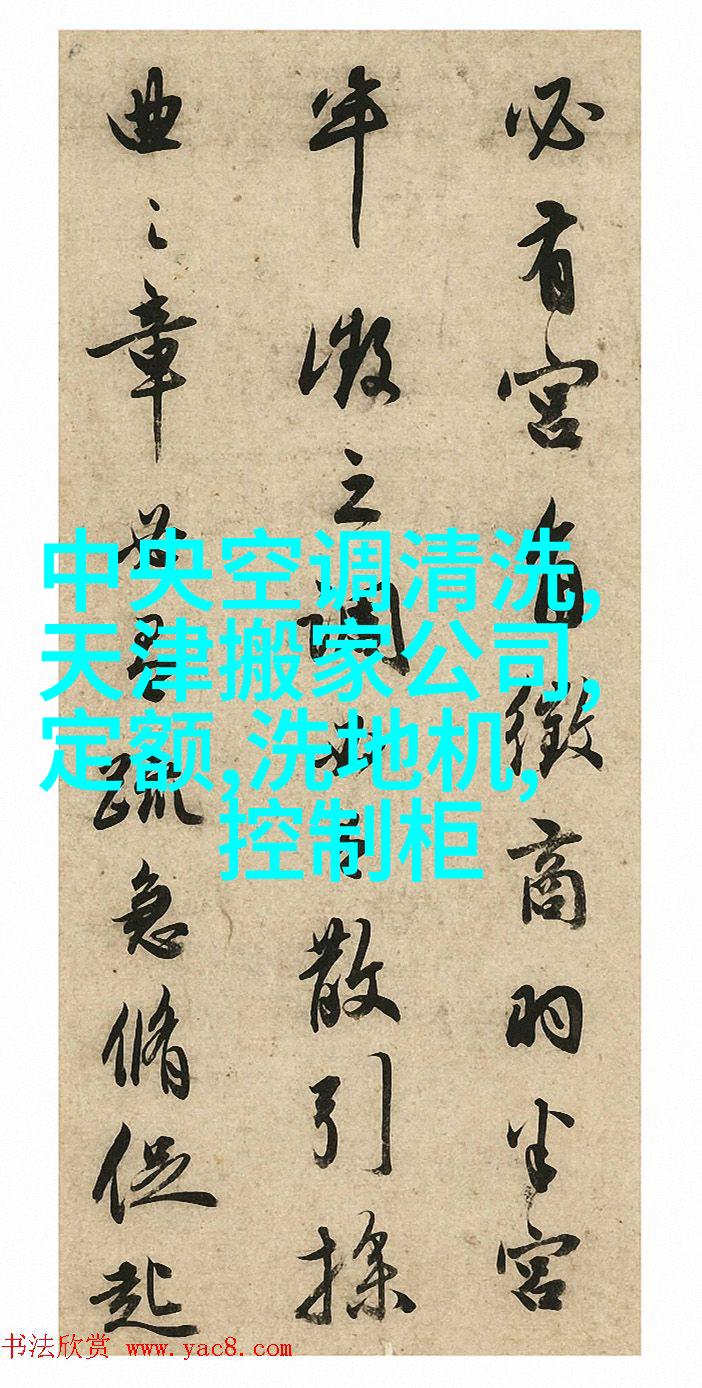 必有宫角徵商羽半宫
半徵之调散引操
曲之章疏急脩促起
中央空调清洗,
天津搬家公司,
定额,洗地机,
控制柜
书法欣赏 www.yac8.com